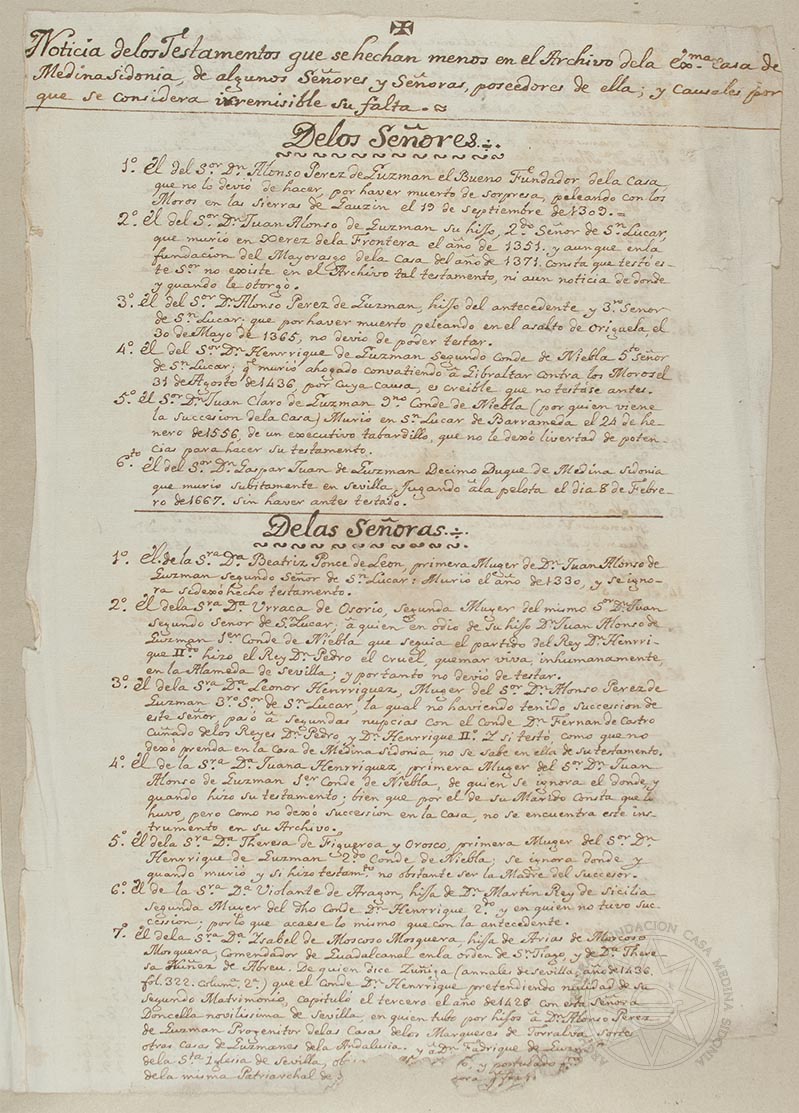 Noticia delos Testamentos que se hechan menos en el Archivo dela exma. casa de
Medina Sidonia, de algunos Señores y Señoras, poseedores de ella; y causales por
que se considera irremisible su falta.
Delos Señores.
1º. El del Sor. Dn. Alonso Perez de Guzman el Bueno Fundador dela Casa,
que no lo devió de hacer, por haver muerto de sorpresa, peleando con los
Moros en las Sierras de Gauzin el 19 de Septiembre de 1309.=
2º. El del Sor. Dn. Juan Alonso de Guzman su hijo, 2do. Señor de Sn. Lucar,
que murió en Xerez dela Frontera el año de 1351. y aunque en la
fundacion del Mayorasgo dela Casa del año de 1371. Consta que testó es-
te Sor. no existe en el Archivo tal testamento, ni aun noticia de donde
y quando le otorgó.
3º. El del Sor. Dn. Alonso Perez de Guzman, hijo del antecedente y 3ro. Señor
de Sn. Lucar; que por haver muerto peleando en el asalto de Origuela, el
30 de Mayo de 1365, no devió de poder testar.
4º. El del Sor. Dn. Henrrique de Guzman Segundo Conde de Niebla 5to. Señor
de Sn. Lucar; qe. murió ahogado convatiendo à Gibraltar contra los Moros el
31 de Agosto de 1436, por cuya causa, es creible que no testáse antes.
5º. El Sor. Dn. Juan Claro de Guzman 9no. Conde de Niebla (por quien viene
la Succesion dela Casa) Murió en Sn. Lucar de Barrameda el 24 de he-
nero de 1556, de un executivo tabardillo, que no le dexó livertad de poten-
cias para hacer su testamento.
6to. El del Sor. Dn. Gaspar Juan de Guzman Decimo Duque de Medina Sidonia
que murio subitamente en Sevilla, Jugando âla pelota el dia 8 de Febre-
ro de 1667. sin haver antes testado.
Delas Señoras.
1º. El de la Sra. Da. Beatriz Ponce de Leon, primera Muger de Dn. Juan Alonso de
Guzman segundo Señor de Sn. Lucar: Murio el año de 1330, y se igno-
ra si dexó hecho testamento.
2º. El dela Sra. Da. Urraca de Osorio, segunda Muger del mismo Sor. Dn. Juan
Segundo Señor de Sn. Lucar: à quien en odio de su hijo Dn. Juan Alonso de
Guzman 1er. Conde de Niebla que seguia el partido del Rey Dn. Henrri-
que IIdo. hizo el Rey Dn. Pedro el cruel, quemar viva, inhumanamente,
en la Alameda de Sevilla; y portanto no devió de testar.
3º. El dela Sra. Da. Leonor Henrriquez, Muger del Sor. Dn. Alonso Perez de
Guzman 3ro. Sor. de Sn. Lucar, la qual no haviendo tenido Succesion de
este señor, pasó a segundas nupcias con el Conde Dn. Fernan de Castro
Cuñado delos Reyes Dn. Pedro, y Dn. Henrrique IIº. Y si testó, como que no
dexó prenda en la Casa de Medina Sidonia no se sabe en ella de su testamento.
4º. El de la Sra. Da. Juana Henrriquez, primera Muger del Sor. Dn. Juan
Alonso de Guzman 1er. Conde de Niebla, de quien se ignora el donde y
quando hizo su testamento; bien que por el de su Marido Consta que lo
huvo, pero como no dexó Succession en la Casa, no se encuentra este ins-
trumento en su Archivo.
5º. El dela Sra. Da. Theresa de Figueroa y Orosco, primera Muger del Sor. Dn.
Henrrique de Guzman 2do. Conde de Niebla; se ignora donde y
quando murió, y si hizo testamto. no obstante ser la Madre del Succesor.
6º. El de la Sra. Da. Violante de Aragon, hija de Dn. Martin Rey de Sicilia
Segunda Muger del dho Conde Dn. Henrrique 2do. y en quien no tuvo suc-
cession; por lo que acaese lo mismo que con la antecedente.
7º. El dela Sra. Da. Ysabel de Moscoso Mosquera hija de Arias de Moscoso
Mosquera, Comendador de Guadalcanal en la orden de Sn. Tiago, y de Da. There-
sa Nuñez de Abreu. De quien dice Zuñiga (annales de Sevilla, año de 1436.
fol. 322. column. 2a.) que el Conde Dn. Henrrique pretendiendo nulidad de su
Segundo Matrimonio, capituló el tercero el año de 1428 con esta Señora
Doncella novilisima de Sevilla, en quien tubo por hijos à Dn. Alonso Perez
de Guzman Progenitor delas Casas delos Marqueses de Torralva,
otras Casas de Guzmanes dela Andalusia. y à Dn. Fadrique de
de la Sta. Iglesia de Sevilla, y postulado
de la misma Patriarchal de
FUNDACION CASA MEDINA SIDONIA